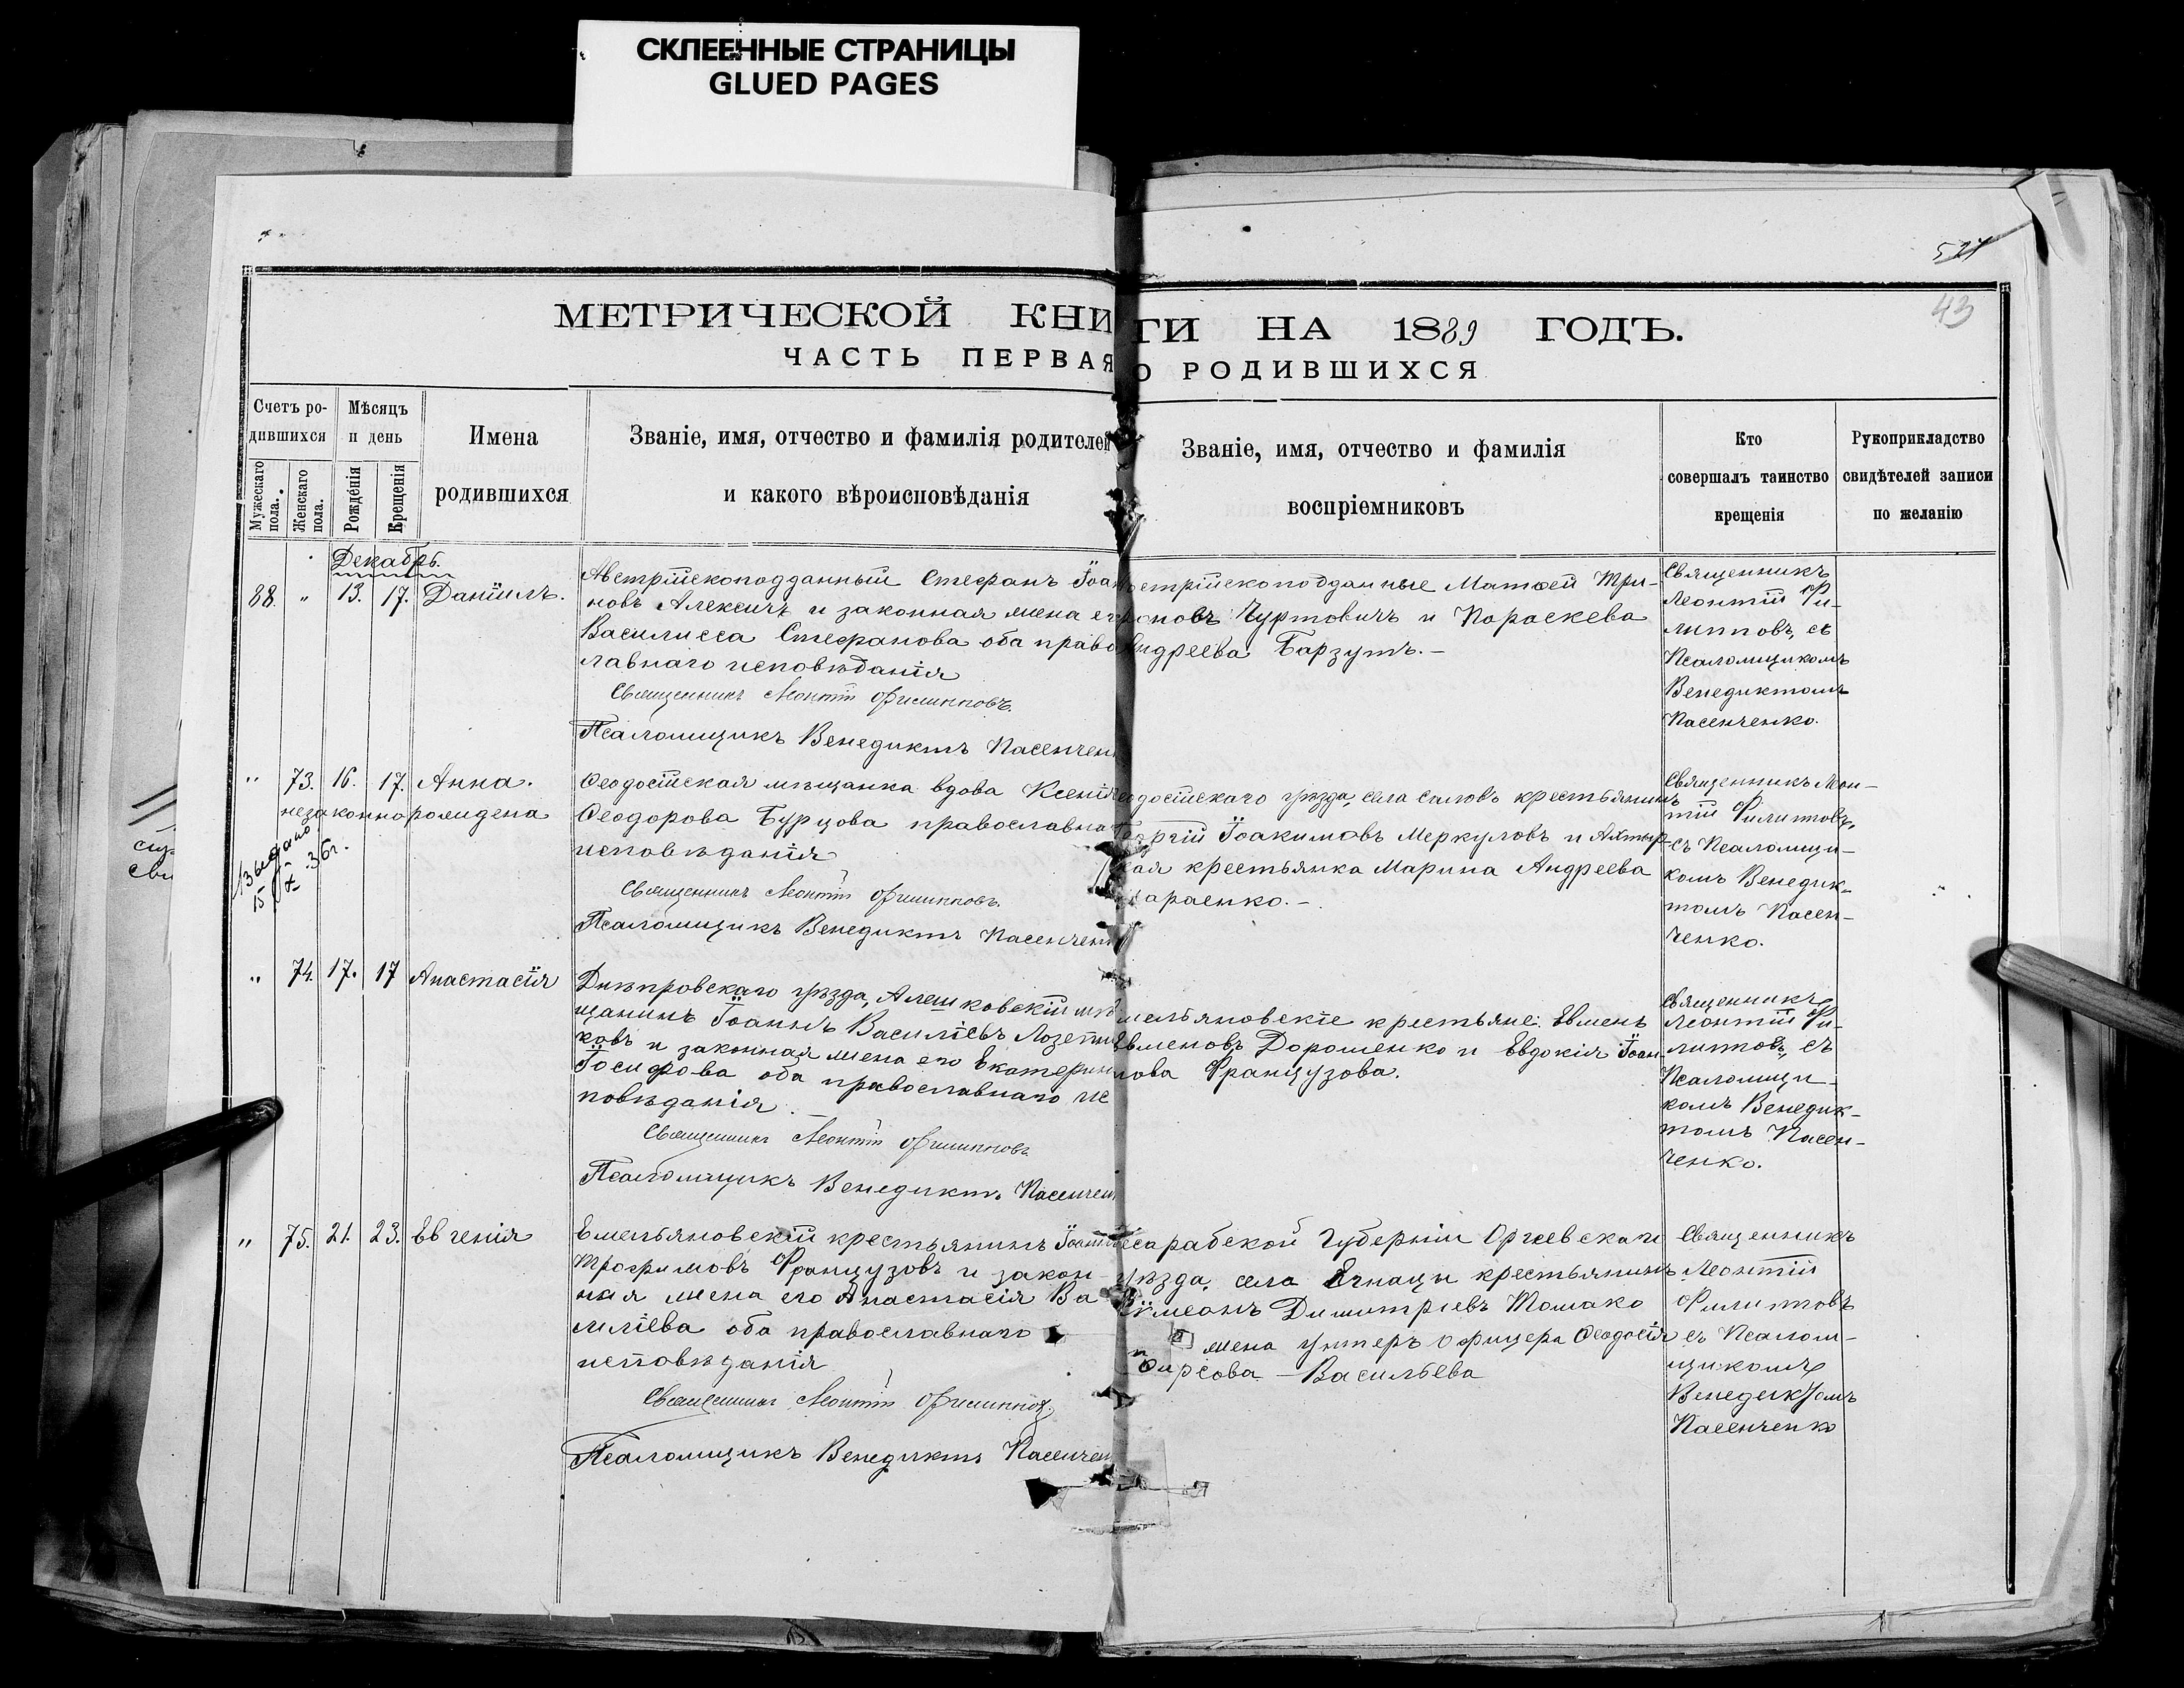 СКЛЕЕННЫЕ СТРАНИЦЫ
GLUED PAGES
521
43
МЕТРИЧЕСКОЙ КНИГИ НА 1889 ГОДЪ.
ЧАСТЬ ПЕРВАЯ О РОДИВШИХСЯ
Счетъ ро-
дившихся
Мужескаго пола.
Женскаго пола.
Мѣсяцъ
и день
Рожденія
Крещенія
Имена
родившихся
Званіе, имя, отчество и фамилія родителей
и какого вѣроисповѣданія
Званіе, имя, отчество и фамилія
воспріемниковъ
Кто
совершалъ таинство
крещенія
Рукоприкладство
свидѣтелей записи
по желанію
Декабрь.
88. " 13. 17. Даніилъ.
Австрійскоподданный Стефанъ Іоан
новъ Алексичъ и законная жена его
Василисса Стефанова оба правос
лавнаго исповѣданія
Священникъ Леонтій Филипповъ.
Псаломщикъ Венедиктъ Пасенчен
стрійскоподданные Матѳей Три-
фоновъ Чуртовичъ и Параскева
Андреева Барзутъ.-
Священникъ
Леонтій Фи-
липповъ, съ
Псаломщикомъ
Венедиктомъ
Пасенченко.
" 73. 16. 17. Анна.
незаконнорождена
Ѳеодосійская мѣщанка вдова Ксенія
Ѳеодорова Бурцова православнаг
исповѣданія
Священникъ Леонтій Филипповъ.
Псаломщикъ Венедиктъ Пасенчен
еодосійскаго уѣзда, села Саловъ крестьянинъ
Георгій Іоакимовъ Меркуловъ и Ахтыр-
кая крестьянка Марина Андреева
Тараенко.-
Священникъ Леон-
тій Филипповъ,
съ Псаломщи-
комъ Венедик-
томъ Пасен-
ченко.
" 74. 17. 17 Анастасія
Днѣпровскаго уѣзда, Алешковскій мѣ
щанинъ Іоаннъ Василіевъ
ковъ и законная жена его Екатерина
Іосифова оба православнаго ис
повѣданія.
Священникъ Леонтій Филипповъ
Псаломщикъ Венедиктъ Пасенчен
мельяновскіе крестьяне: Евменъ
Евменовъ Дорошенко и Евдокія Іоан-
нова Французова.
Священникъ
Леонтій Фи-
липповъ, съ
Псаломщи-
комъ Венедик-
томъ Пасен-
ченко.
" 75. 21. 23. Евгенія
Емельяновскій крестьянинъ Іоаннъ
Трофимовъ Французовъ и закон-
ная жена его Анастасія Ва
силіева оба православнаго
исповѣданія
Священникъ Леонтій Филипповъ
Псаломщикъ Венедиктъ Пасенчен
есарабской Губерніи Оргѣевскаго
уѣзда, села крестьянинъ
Симеонъ Димитріевъ Томако
и жена унтеръ офицера Ѳеодосія
Фирсова - Васильева
Священникъ
Леонтій
Филипповъ
съ Псалом-
щикомъ
Венедиктомъ
Пасенченко